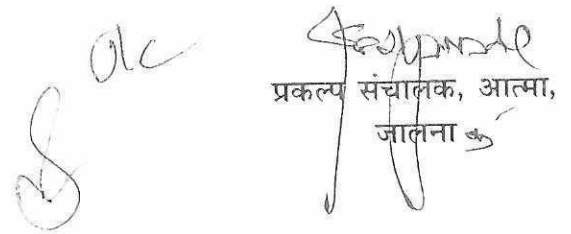 o/c
प्रकल्प संचालक, आत्मा,
जालना